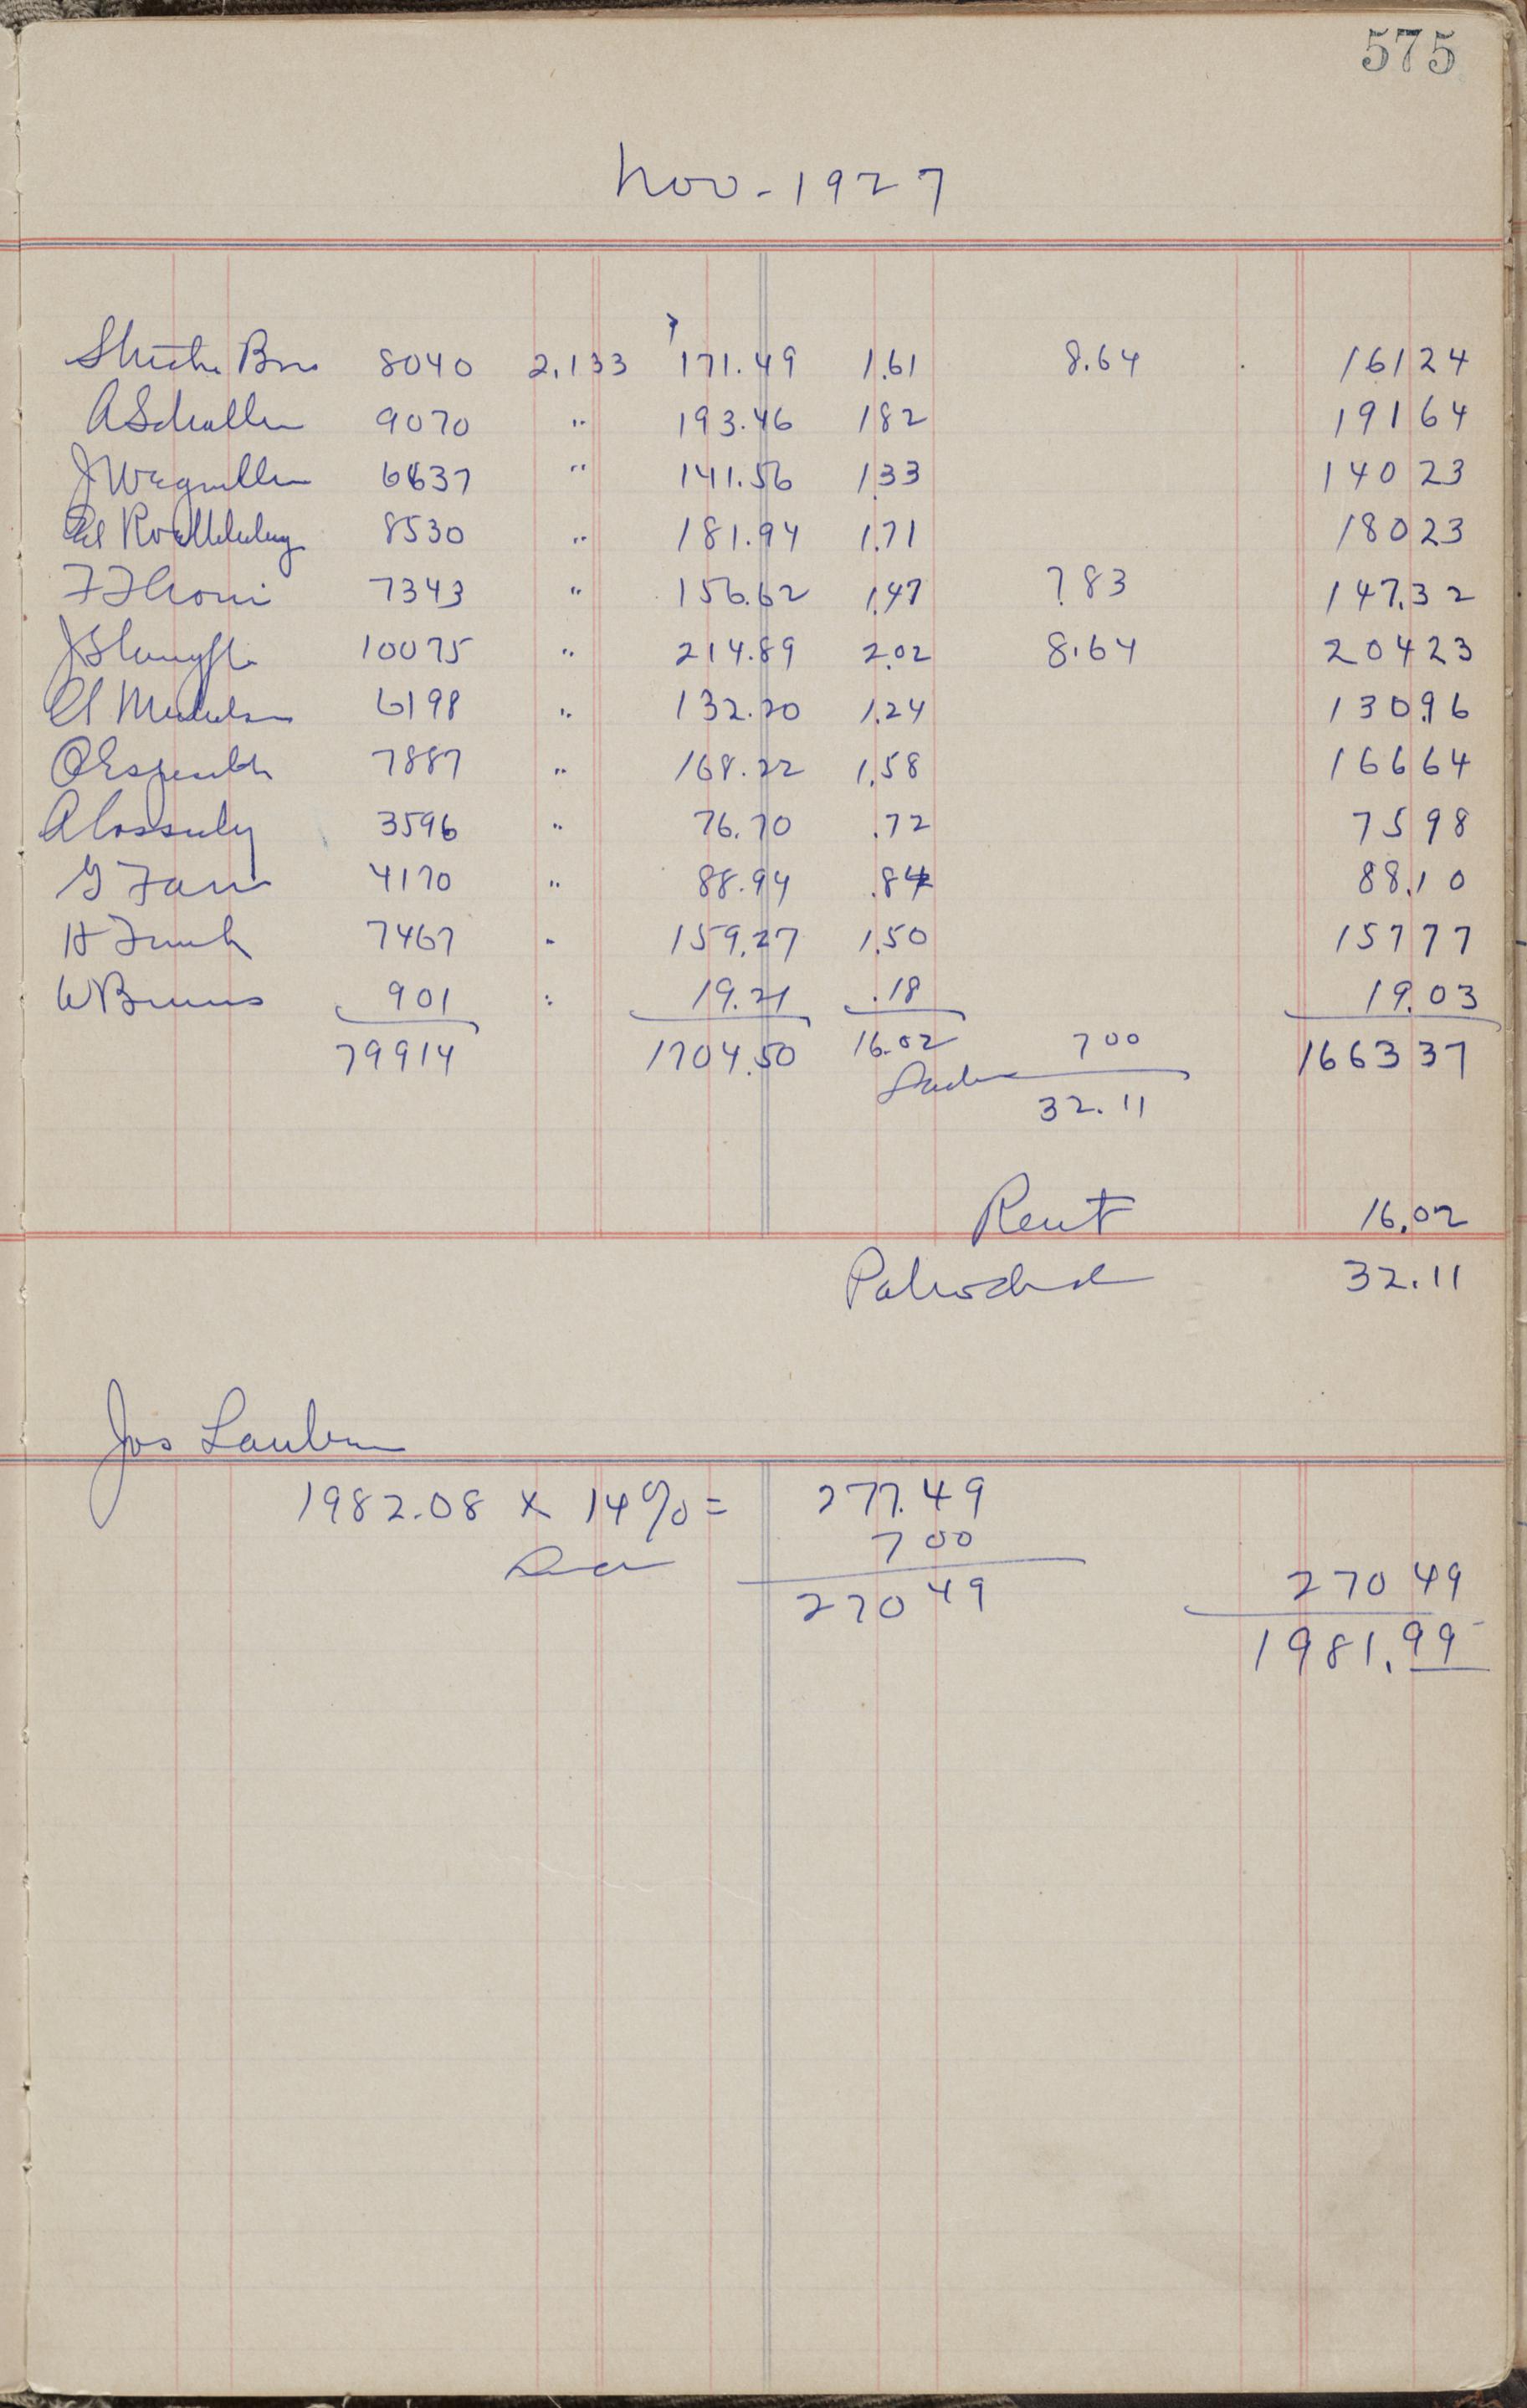 575
Nov - 1927
Bros 8040 2.133 171.49 1.61 8.64 161 24
A Schaller 9070 " 193.46 1 82 191 64
J Wegmuller 6637 " 141.56 1.33 140 23
8530 " 181.94 1.71 180 23
F Thoni 7343 " 156.62 1.47 7.83 147.32
10075 " 214.89 2.02 8.64 204 23
6198 " 132.20 1.24 130.96
7887 " 168.22 1.58 166 64
3596 " 76.70 .72 75 98
G Farni 4170 " 88.94 .84 88.10
H Funk 7467 " 159.27 1.50 157 77
W Bruns 901 " 19.21 .18 19.03
79914 1704.50 16.02 7 00 1663 37
32.11
Rent 16.02
32.11
Jos Lauber
1982.08 x 14% = 277.49
7 00
270 49 270 49
1981.99